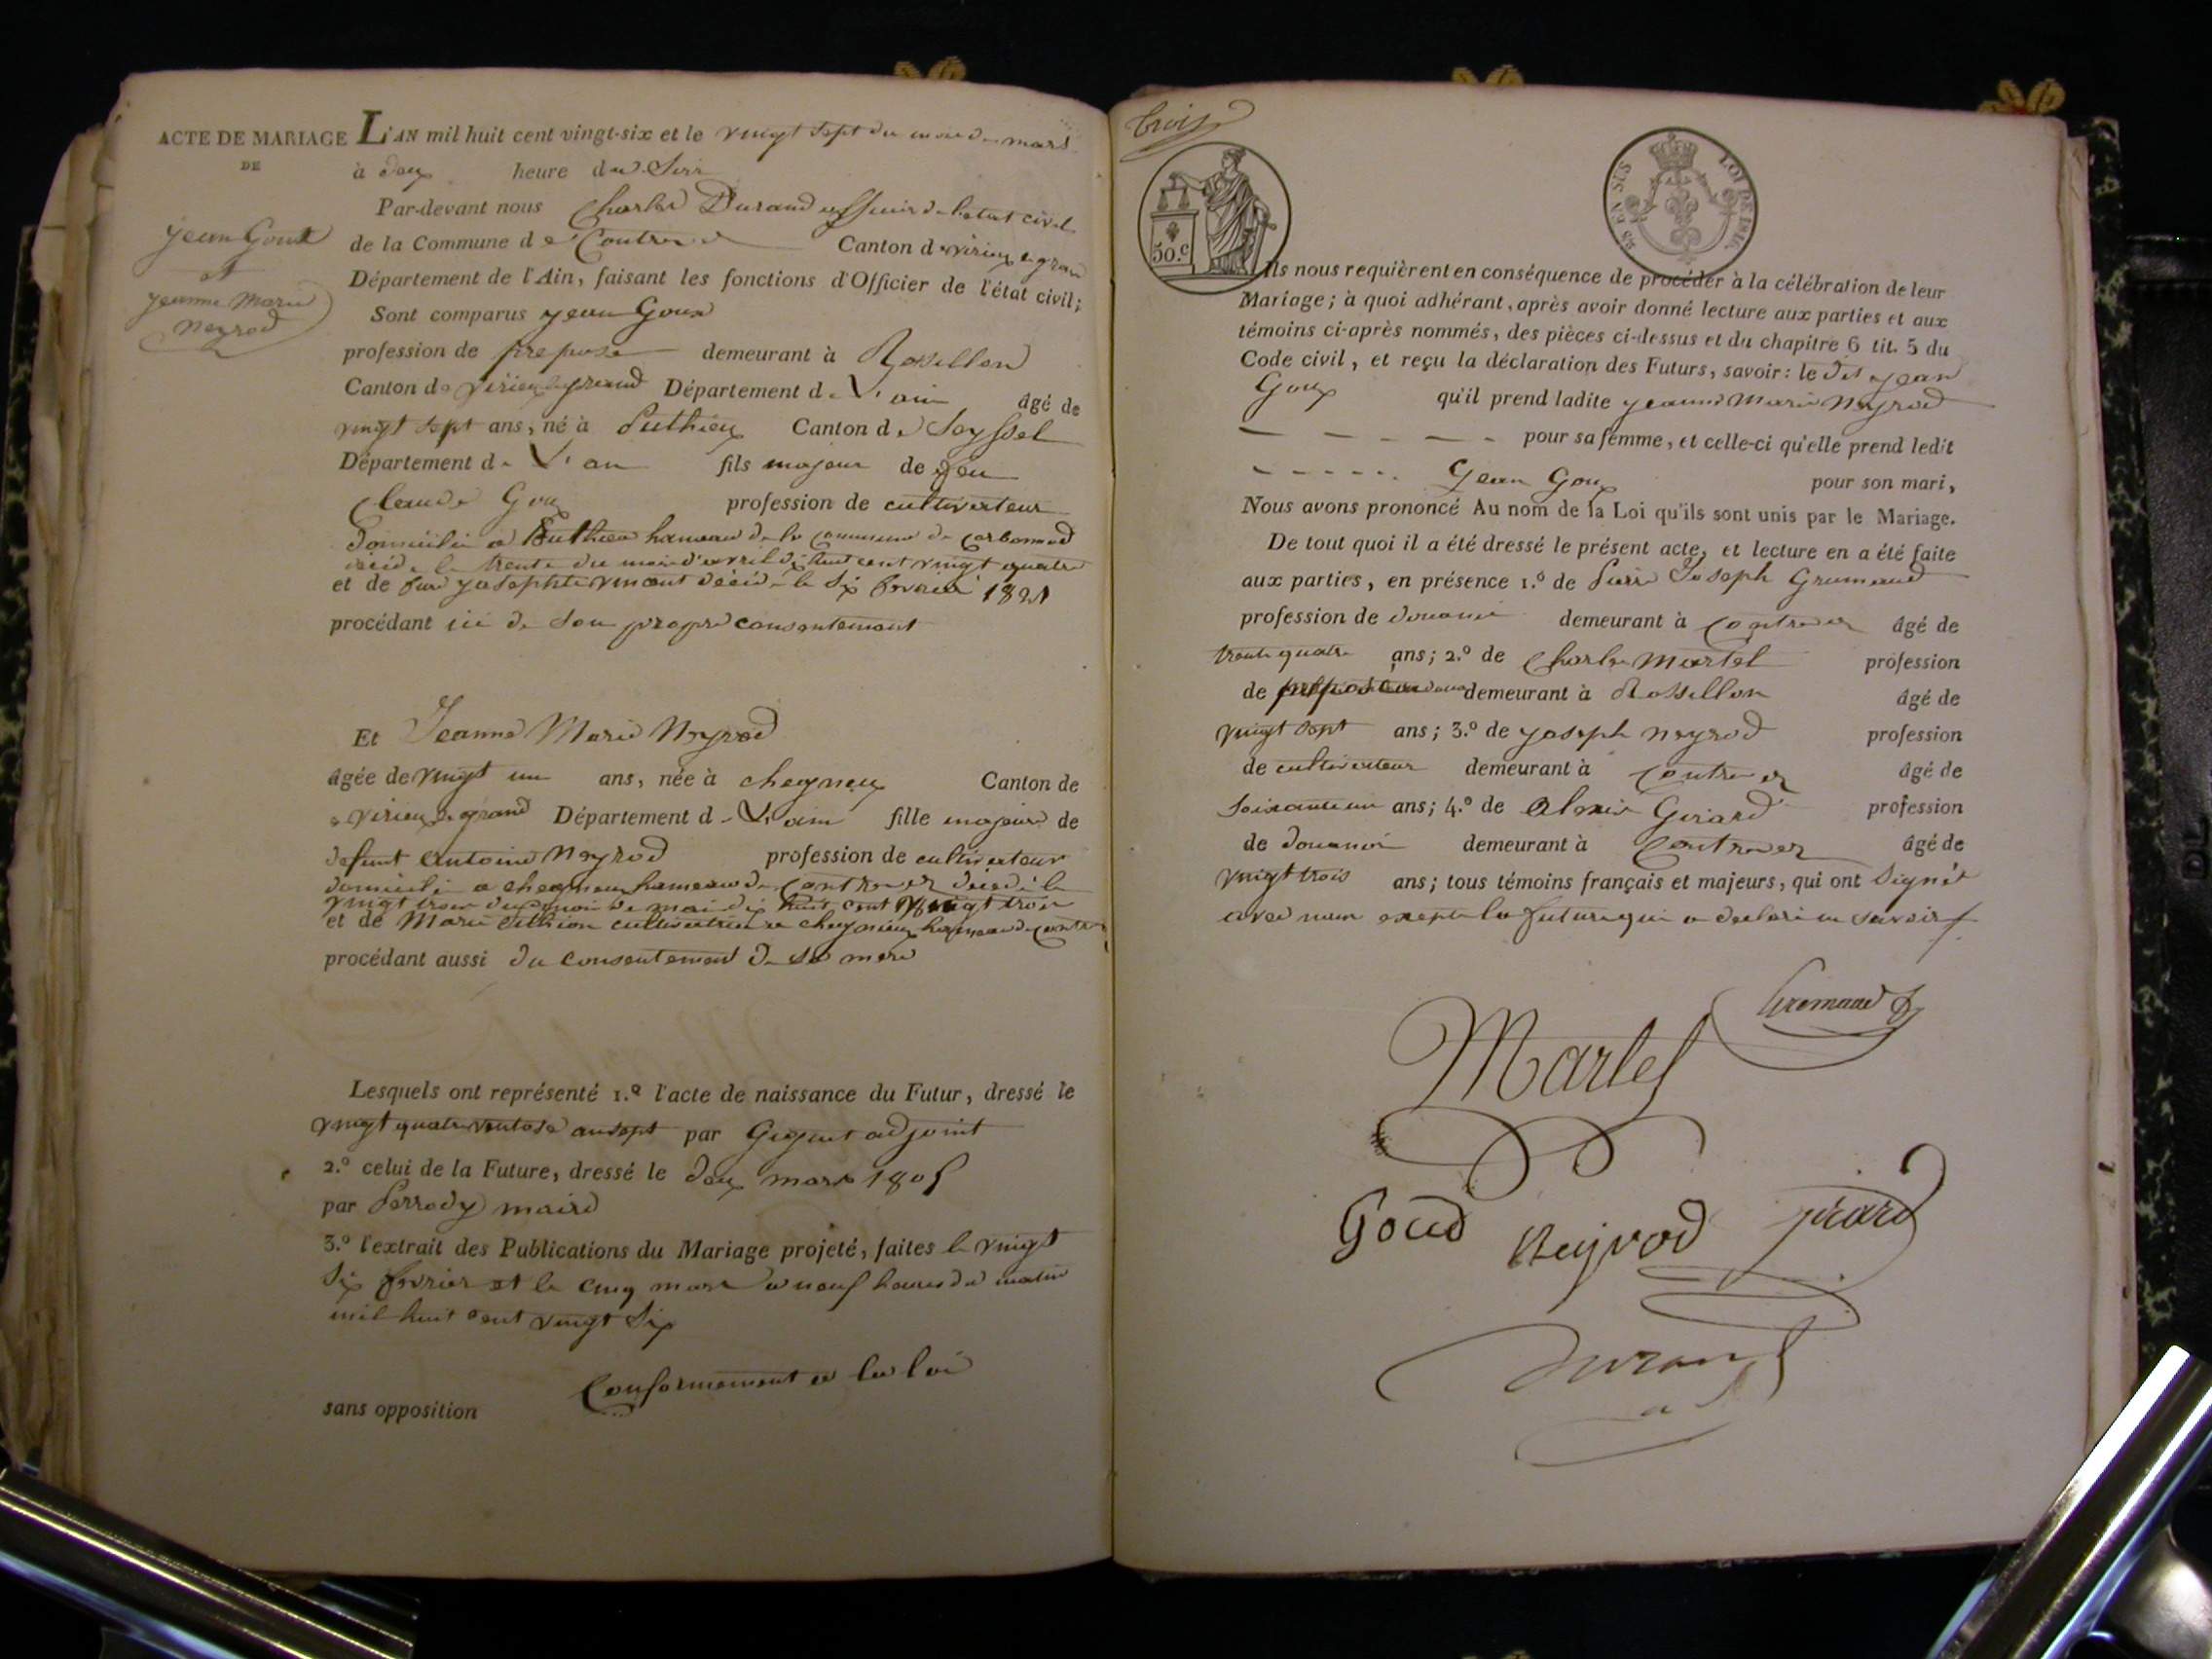 ACTE DE MARIAGE
DE
jean Goux
et
jeanne Marie
neyrod
L'AN mil huit cent vingt-six et le vingt sept du mois de mars
à deux heure du Soir
Par-devant nous Charles Durand officier de l'etat civil
de la Commune de Contrevoz Canton de virieu le grand
Département de l'Ain, faisant les fonctions d'Officier de l'état civil;
Sont comparus jean Goux
profession de preposé demeurant à Rossillon
Canton de virieu le grand Département de L'ain âgé de
vingt sept ans, né à Puthieu Canton de Seyssel
Département de L'ain fils majeur de feu
Claude Goux profession de cultivateur
domicilié a Puthieu hameau de la Commune de Corbonod
décédé le trente du mois d'avril dix huit cent vingt quatre
et de feue josephte vincent décédé le Six février 1821
procédant ici de Son propre consentement
Et Jeanne Marie Neyrod
âgée de vingt un ans, née à cheyneux Canton de
virieu le grand Département de L'ain fille majeure de
defunt antoine Neyrod profession de cultivateur
domicilié a cheyneux hameau de Contrevoz décédé le
vingt trois du mois de mai dix huit cent vingt trois
et de Marie cultivatrice a cheyneux hameau de Contrevoz
procédant aussi du consentement de sa mere
Lesquels ont représenté 1.º l'acte de naissance du Futur, dressé le
vingt quatre ventose an sept par adjoint
2.º celui de la Future, dressé le deux mars 1805
par Perrody maire
3.º l'extrait des Publications du Mariage projeté, faites le vingt
Six fevrier et le cinq mars a neuf heures du matin
mil huit cent vingt Six
Conformement a la loi
sans opposition
trois
50.c
LOI DE 1816
Ils nous requièrent en conséquence de procéder à la célébration de leur
Mariage; à quoi adhérant, après avoir donné lecture aux parties et aux
témoins ci-après nommés, des pièces ci-dessus et du chapitre 6 tit. 5 du
Code civil, et reçu la déclaration des Futurs, savoir: le dit jean
Goux qu'il prend ladite jeanne Marie Neyrod
pour sa femme, et celle-ci qu'elle prend ledit
Jean Goux pour son mari,
Nous avons prononcé Au nom de la Loi qu'ils sont unis par le Mariage.
De tout quoi il a été dressé le présent acte, et lecture en a été faite
aux parties, en présence 1.º de Pierre Joseph Gremaud
profession de douanier demeurant à Contrevoz âgé de
trente quatre ans; 2.º de Charles Martel profession
de demeurant à Rossillon âgé de
vingt sept ans; 3.º de joseph neyrod profession
de cultivateur demeurant à Contrevoz âgé de
soixante un ans; 4.º de Alexis Girard profession
de douanier demeurant à Contrevoz âgé de
vingt trois ans; tous témoins français et majeurs, qui ont Signés
avec nous excepté la future qui a declaré ne savoir
Gremaud
Martel
Goud
Neyrod
Girard
Durand